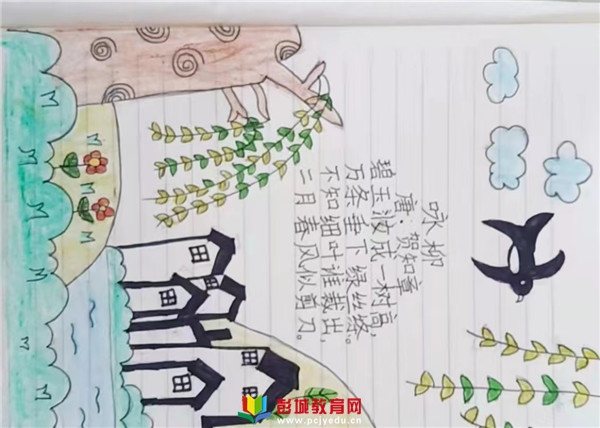 咏柳
唐:贺知章
碧玉波成一树高,
万条垂下绿丝绦。
不知细叶谁裁出,
二月春风似剪刀。
彭城教育网
www.pcjyedu.cn